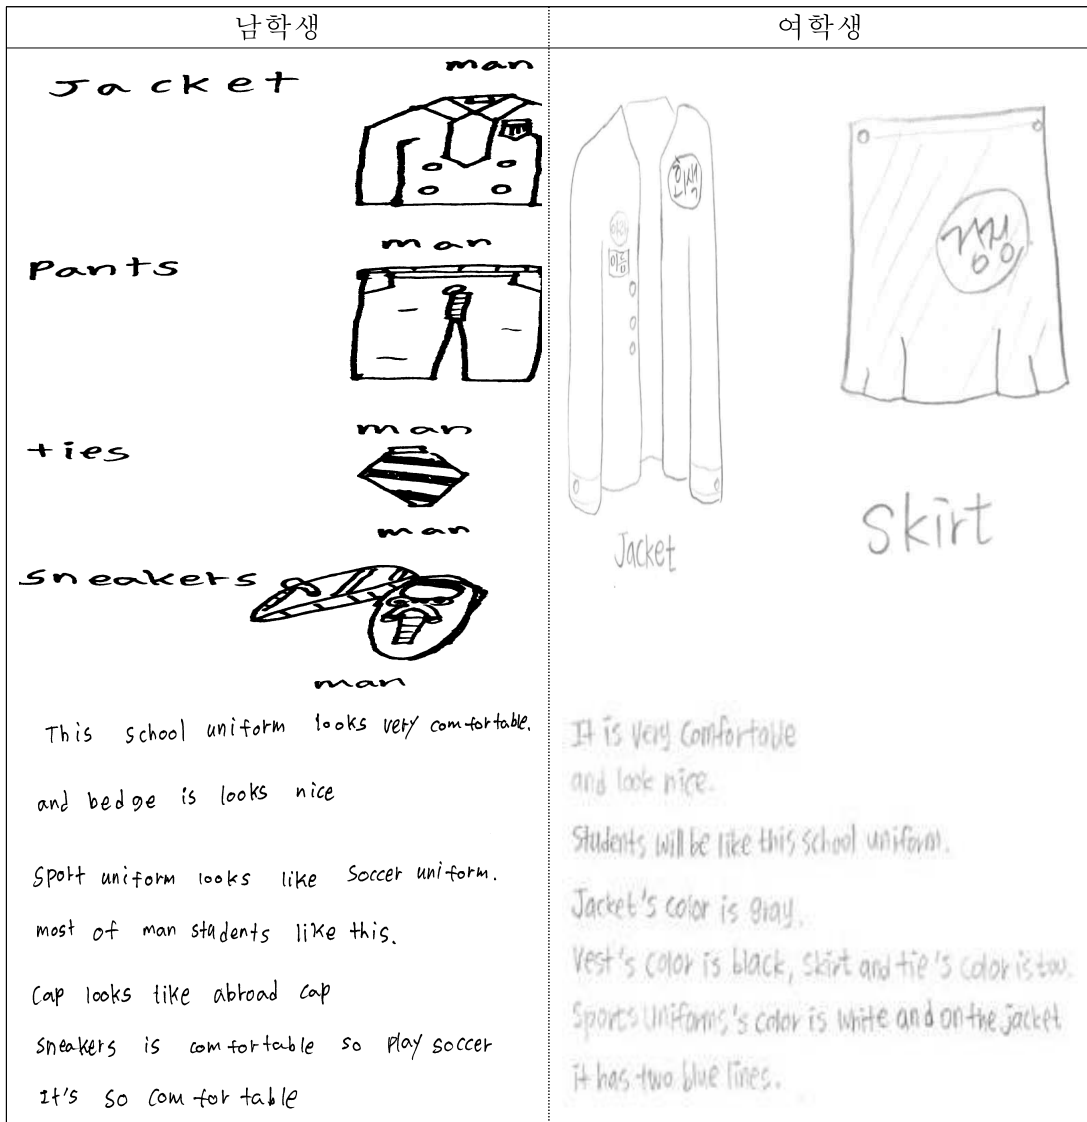 남학생
여학생
Jacket
man
Pants
man
ties
man
man
sneakers
man
This school uniform looks very comfortable.
and bedge is looks nice
Sport uniform looks like Soccer uniform.
most of man students like this.
Cap looks like abroad cap
sneakers is comfortable so play soccer
It's so comfortable
회색
이름
검정
Jacket
Skirt
It is very Comfortable
and look nice.
Students will be like this school uniform.
Jacket's color is gray.
Vest's color is black, skirt and tie's color is too.
Sports Uniforms's color is white and on the jacket
it has two blue lines.